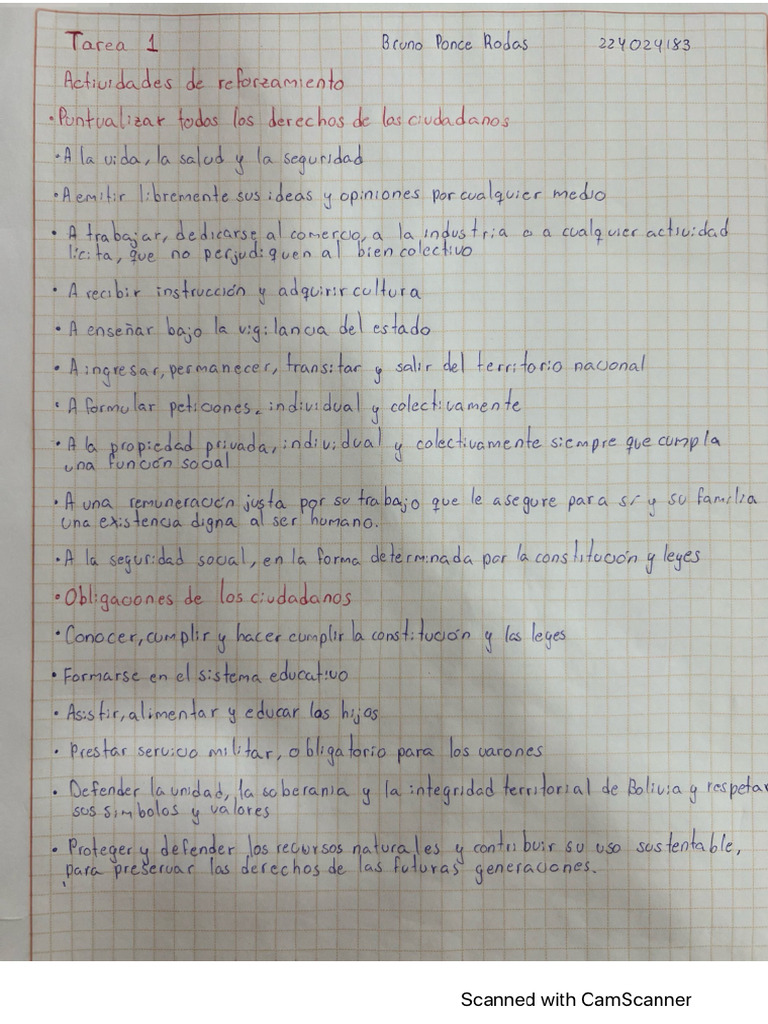 Tarea 1 Bruno Ponce Rodas 224024183
Actividades de reforzamiento
• Puntualizar todos los derechos de los ciudadanos
• A la vida, la salud y la seguridad
• A emitir libremente sus ideas y opiniones por cualquier medio
• A trabajar, dedicarse al comercio, a la industria o a cualquier actividad
licita, que no perjudiquen al bien colectivo
• A recibir instrucción y adquirir cultura
• A enseñar bajo la vigilancia del estado
• A ingresar, permanecer, transitar y salir del territorio nacional
• A formular peticiones, individual y colectivamente
• A la propiedad privada, individual y colectivamente siempre que cumpla
una función social
• A una remuneración justa por su trabajo que le asegure para sí y su familia
una existencia digna al ser humano.
• A la seguridad social, en la forma determinada por la constitución y leyes
• Obligaciones de los ciudadanos
• Conocer, cumplir y hacer cumplir la constitución y las leyes
• Formarse en el sistema educativo
• Asistir, alimentar y educar los hijos
• Prestar servicio militar, obligatorio para los varones
• Defender la unidad, la soberania y la integridad territorial de Bolivia y respetar
sus simbolos y valores
• Proteger y defender los recursos naturales y contribuir su uso sustentable,
para preservar los derechos de las futuras generaciones.
Scanned with CamScanner